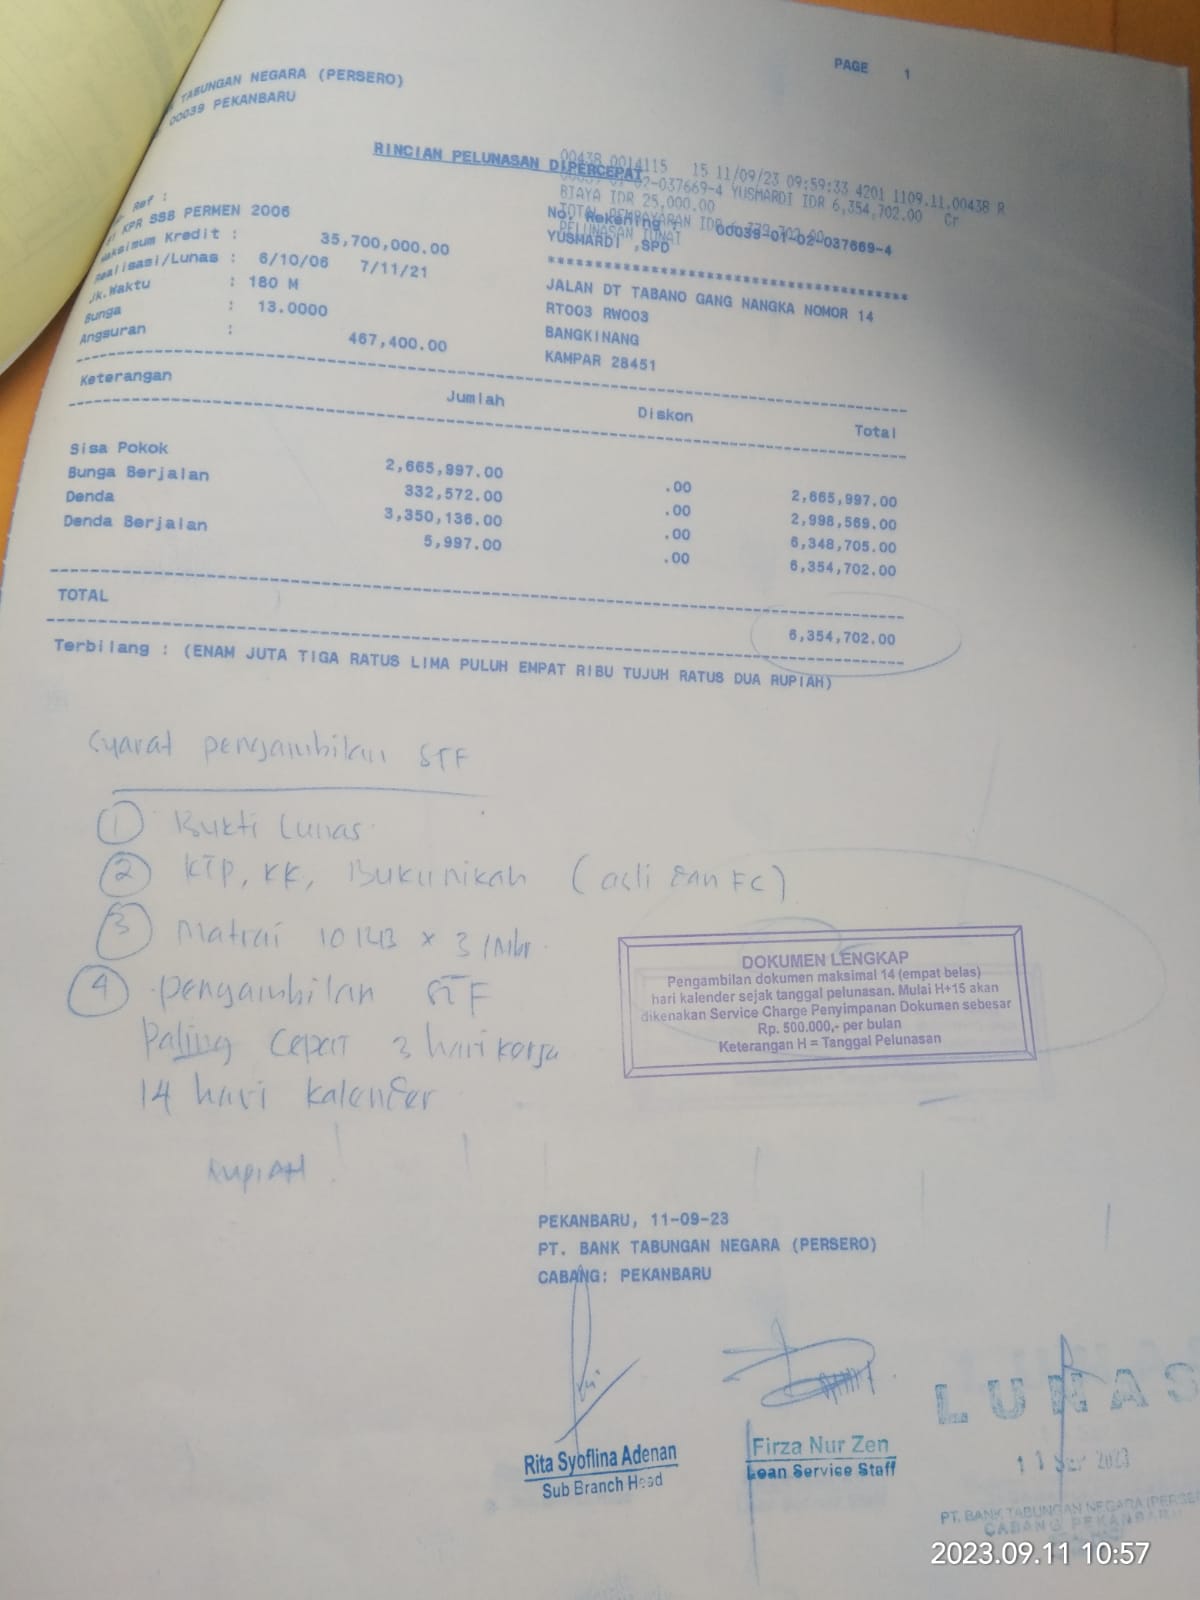 PAGE 1
TABUNGAN NEGARA (PERSERO)
00039 PEKANBARU
RINCIAN PELUNASAN DIPERCEPAT
00438 0014115 15 11/09/23 09:59:33 4201 1109.11.00438 R
02-037669-4 YUSMARDI IDR 6,354,702.00 Cr
BIAYA IDR 25,000.00
TOTAL PEMBAYARAN IDR
PELUNASAN TUNAI
Ref :
KPR SSB PERMEN 2006
Maksimum Kredit : 35,700,000.00
Realisasi/Lunas : 6/10/06 7/11/21
Jk.Waktu : 180 M
Bunga : 13.0000
Angsuran : 467,400.00
No. Rekening : 00039-01-02-037669-4
YUSMARDI ,SPD
****************************************
JALAN DT TABANO GANG NANGKA NOMOR 14
RT003 RW003
BANGKINANG
KAMPAR 28451
Keterangan Jumlah Diskon Total
Sisa Pokok 2,665,997.00 .00 2,665,997.00
Bunga Berjalan 332,572.00 .00 2,998,569.00
Denda 3,350,136.00 .00 6,348,705.00
Denda Berjalan 5,997.00 .00 6,354,702.00
TOTAL 6,354,702.00
Terbilang : (ENAM JUTA TIGA RATUS LIMA PULUH EMPAT RIBU TUJUH RATUS DUA RUPIAH)
Syarat pengambilan STF
1 Bukti Lunas
2 KTP, KK, Buku nikah (asli dan FC)
3 Matrai 10 RB x 3 /Mbr
4 pengambilan STF
Paling Cepat 3 hari kerja
14 hari kalender
RupiAH
DOKUMEN LENGKAP
Pengambilan dokumen maksimal 14 (empat belas)
hari kalender sejak tanggal pelunasan. Mulai H+15 akan
dikenakan Service Charge Penyimpanan Dokumen sebesar
Rp. 500.000,- per bulan
Keterangan H = Tanggal Pelunasan
PEKANBARU, 11-09-23
PT. BANK TABUNGAN NEGARA (PERSERO)
CABANG: PEKANBARU
Rita Syoflina Adenan
Sub Branch Head
Firza Nur Zen
Loan Service Staff
LUNAS
11 Sep 2023
PT. BANK TABUNGAN NEGARA (PERSE
CABANG PEKANBARU
2023.09.11 10:57